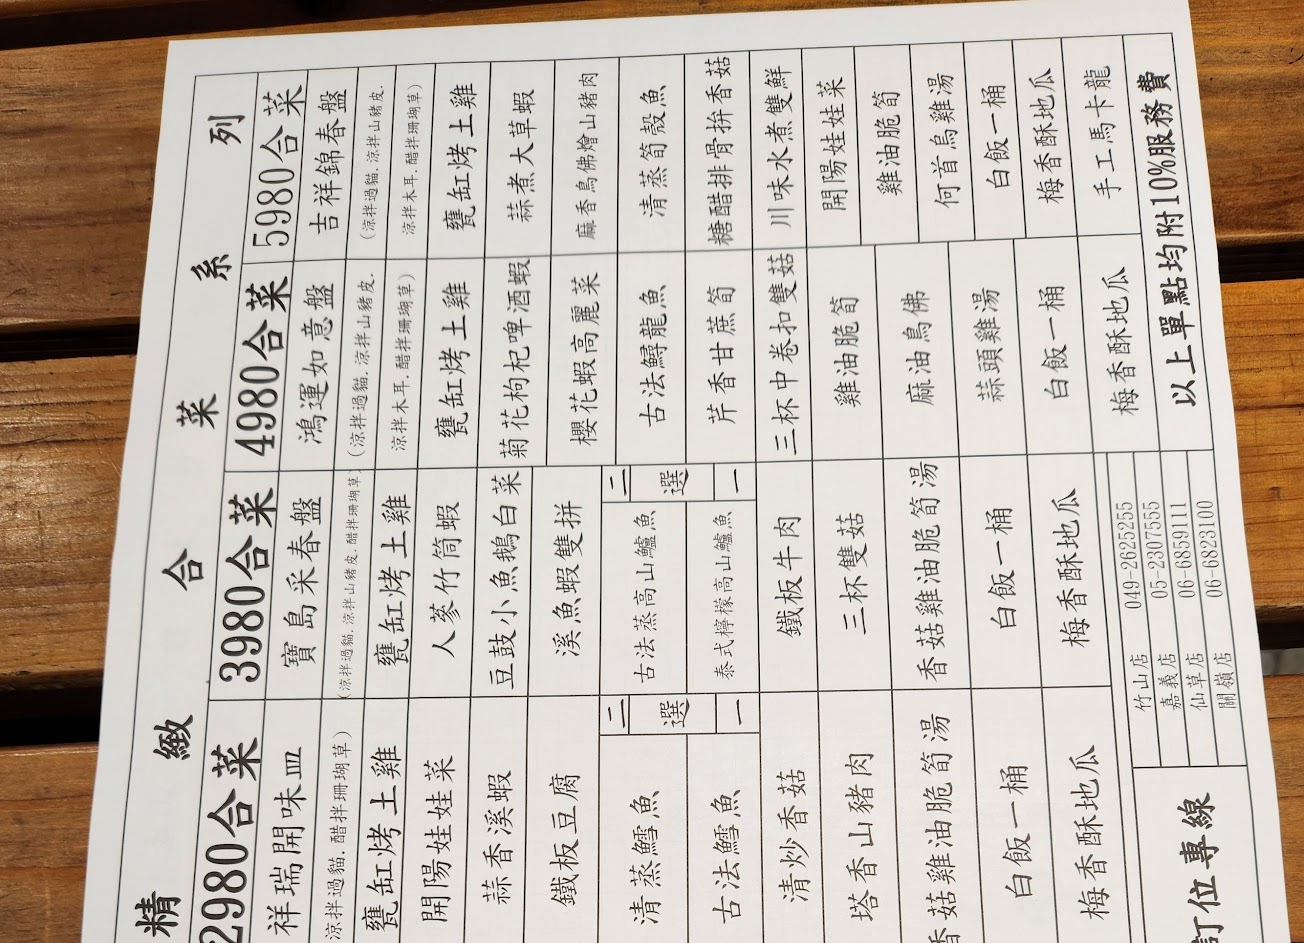 精緻合菜系列
2980合菜
祥瑞開味皿
涼拌過貓, 醋拌珊瑚草)
甕缸烤土雞
開陽娃娃菜
蒜香溪蝦
鐵板豆腐
二選一
清蒸鱈魚
古法鱈魚
清炒香菇
塔香山豬肉
香菇雞油脆筍湯
白飯一桶
梅香酥地瓜
3980合菜
寶島采春盤
(涼拌過貓, 涼拌山豬皮, 醋拌珊瑚草)
甕缸烤土雞
人蔘竹筒蝦
豆鼓小魚鵝白菜
溪魚蝦雙拼
二選一
古法蒸高山鱸魚
泰式檸檬高山鱸魚
鐵板牛肉
三杯雙菇
香菇雞油脆筍湯
白飯一桶
梅香酥地瓜
4980合菜
鴻運如意盤
(涼拌過貓, 涼拌山豬皮,
涼拌木耳, 醋拌珊瑚草)
甕缸烤土雞
菊花枸杞啤酒蝦
櫻花蝦高麗菜
古法鱘龍魚
芹香甘蔗筍
三杯中卷扣雙菇
雞油脆筍
麻油鳥佛
蒜頭雞湯
白飯一桶
梅香酥地瓜
5980合菜
吉祥錦春盤
(涼拌過貓, 涼拌山豬皮,
涼拌木耳, 醋拌珊瑚草)
甕缸烤土雞
蒜煮大草蝦
麻香鳥佛燴山豬肉
清蒸筍殼魚
糖醋排骨拚香菇
川味水煮雙鮮
開陽娃娃菜
雞油脆筍
何首烏雞湯
白飯一桶
梅香酥地瓜
手工馬卡龍
訂位專線
竹山店 049-2625255
嘉義店 05-2307555
仙草店 06-6859111
關嶺店 06-6823100
以上單點均附10%服務費